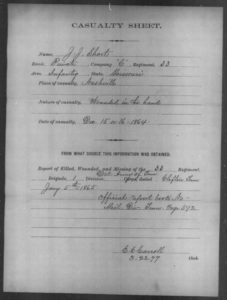 CASUALTY SHEET.
Name, J. J. Short
Rank, Private Company "C" Regiment, 33
Arm, Infantry State Missouri
Place of casualty, Nashville
Nature of casualty, Wounded in the hand
Date of casualty, Dec 15 or 16 - 1864
FROM WHAT SOURCE THIS INFORMATION WAS OBTAINED.
Report of Killed, Wounded, and Missing of the 33 Regiment,
Brigade, 1 Division, Clifton Tenn
Jany 5th 1865
Official report
Mil. Div. Page 572
E. C. Carroll
3-22-77 Clerk.